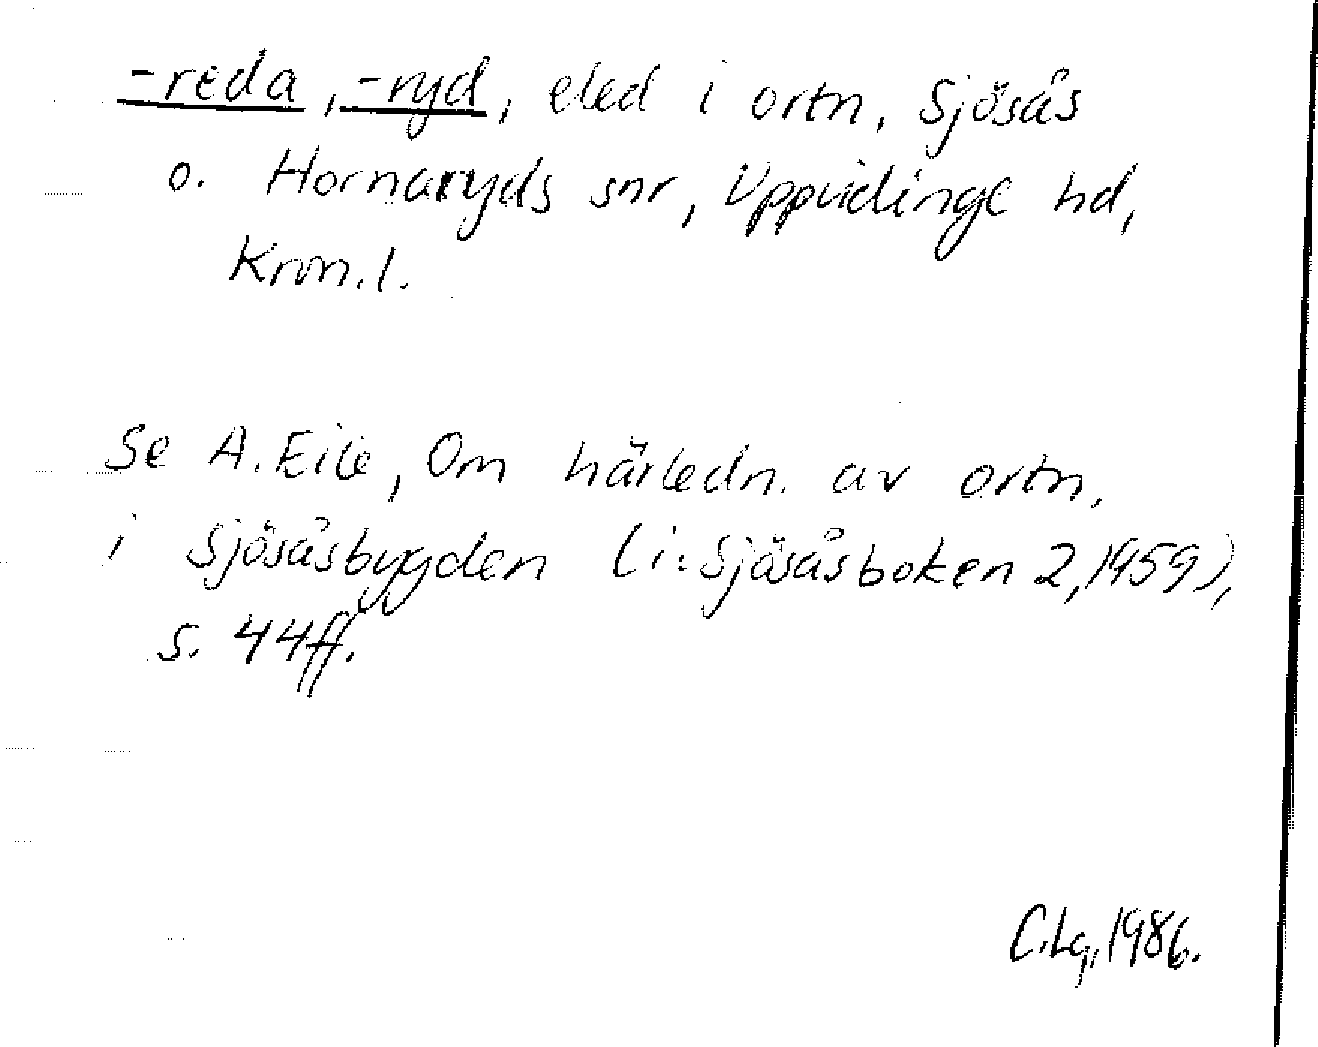 -reda, -ryd, eled i ortn, Sjösås
o. Hornaryds snr, Uppvidinge hd,
Kron.l.
Se A. Eile, Om härledn. av ortn,
i Sjösåsbygden (i: Sjösåsboken 2, 1959),
s. 44ff.
C.Lq, 1986.